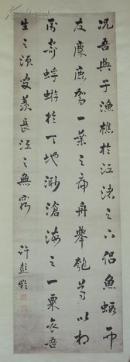 況吾與子漁樵於江渚之上侶魚蝦而
友麋鹿駕一葉之扁舟舉匏尊以相
屬寄蜉蝣於天地渺滄海之一粟哀吾
生之須臾羨長江之無窮
許